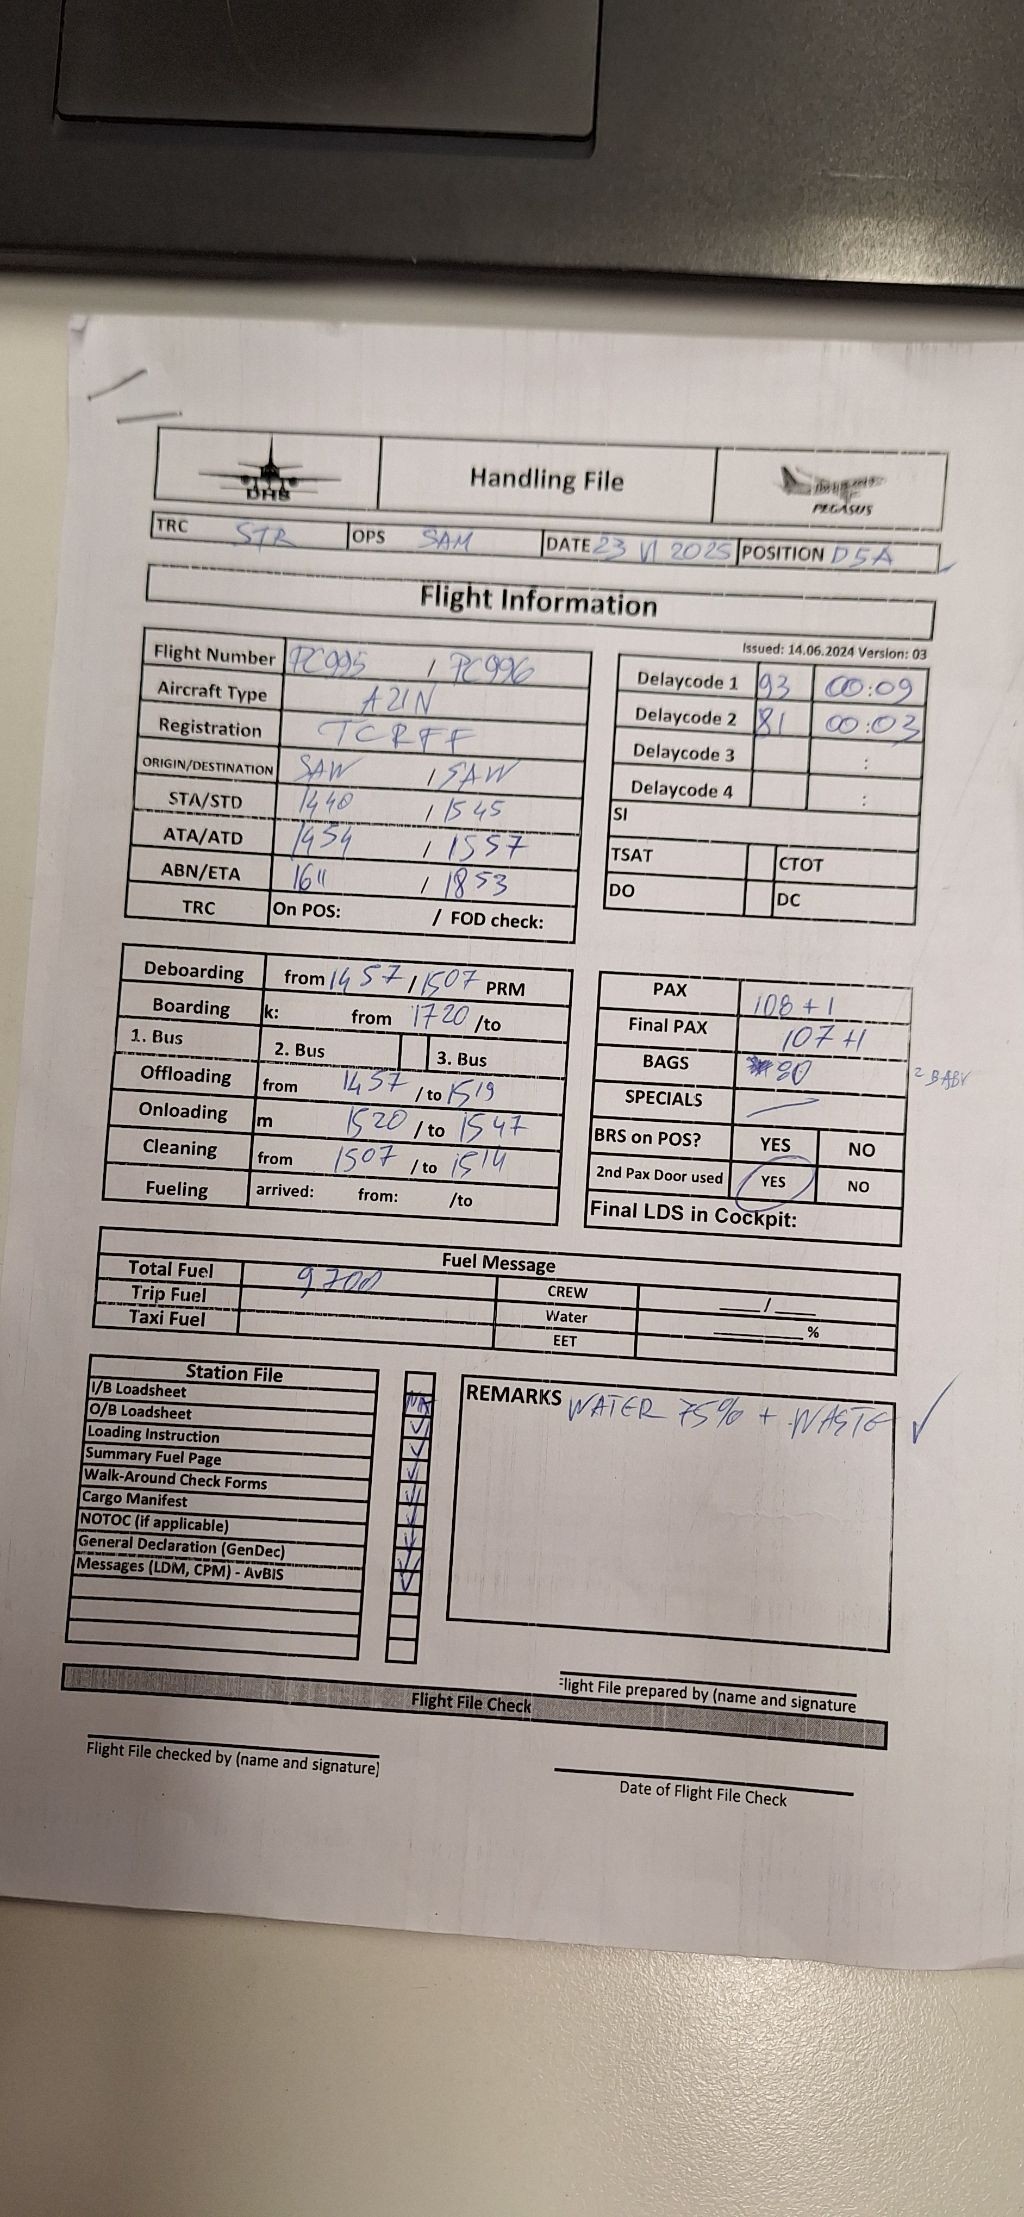 DHS
Handling File
PEGASUS
TRC STR OPS SAM DATE 23 VI 2025 POSITION D5A
Flight Information
Issued: 14.06.2024 Version: 03
Flight Number PC995 / PC996
Aircraft Type A21N
Registration TCRFF
ORIGIN/DESTINATION SAW / SAW
STA/STD 1440 / 1545
ATA/ATD 1454 / 1557
ABN/ETA 1611 / 1853
TRC On POS: / FOD check:
Delaycode 1 93 00:09
Delaycode 2 81 00:03
Delaycode 3 :
Delaycode 4 :
SI
TSAT CTOT
DO DC
Deboarding from 1457 / 1507 PRM
Boarding k: from 1720 /to
1. Bus 2. Bus 3. Bus
Offloading from 1457 / to 1519
Onloading m 1520 / to 1547
Cleaning from 1507 / to 1514
Fueling arrived: from: /to
PAX 108 + 1
Final PAX 107 +1
BAGS 80 2 BABY
SPECIALS
BRS on POS? YES NO
2nd Pax Door used YES NO
Final LDS in Cockpit:
Fuel Message
Total Fuel 9700 CREW ___/___
Trip Fuel Water ______ %
Taxi Fuel EET
Station File
I/B Loadsheet
O/B Loadsheet
Loading Instruction
Summary Fuel Page
Walk-Around Check Forms
Cargo Manifest
NOTOC (if applicable)
General Declaration (GenDec)
Messages (LDM, CPM) - AvBIS
REMARKS WATER 75% + WASTE ✓
Flight File prepared by (name and signature
Flight File Check
Flight File checked by (name and signature)
Date of Flight File Check